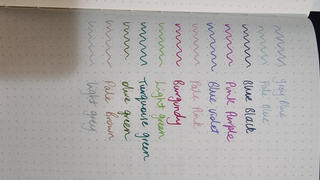 grey Blue
Pale Blue
Blue Black
Pink Purple
Blue Violet
Pale Pink
Burgundy
Light green
Turquoise green
olive green
Pale Brown
light grey